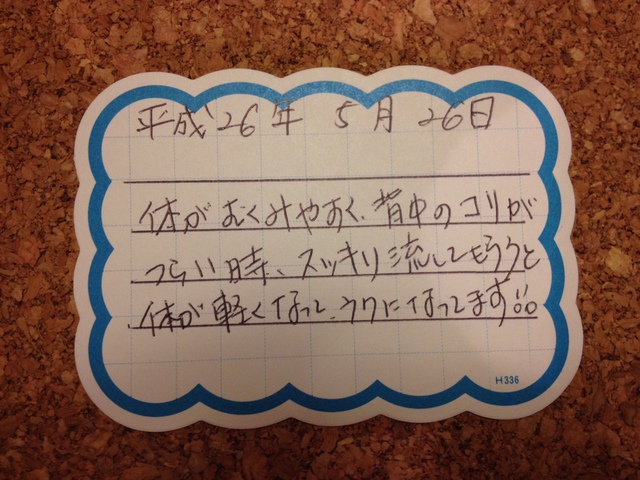 平成26年 5月 26日
体がむくみやすく、背中のコリが
つらい時、スッキリ流してもらうと
体が軽くなって、ラクになってます!!
H336